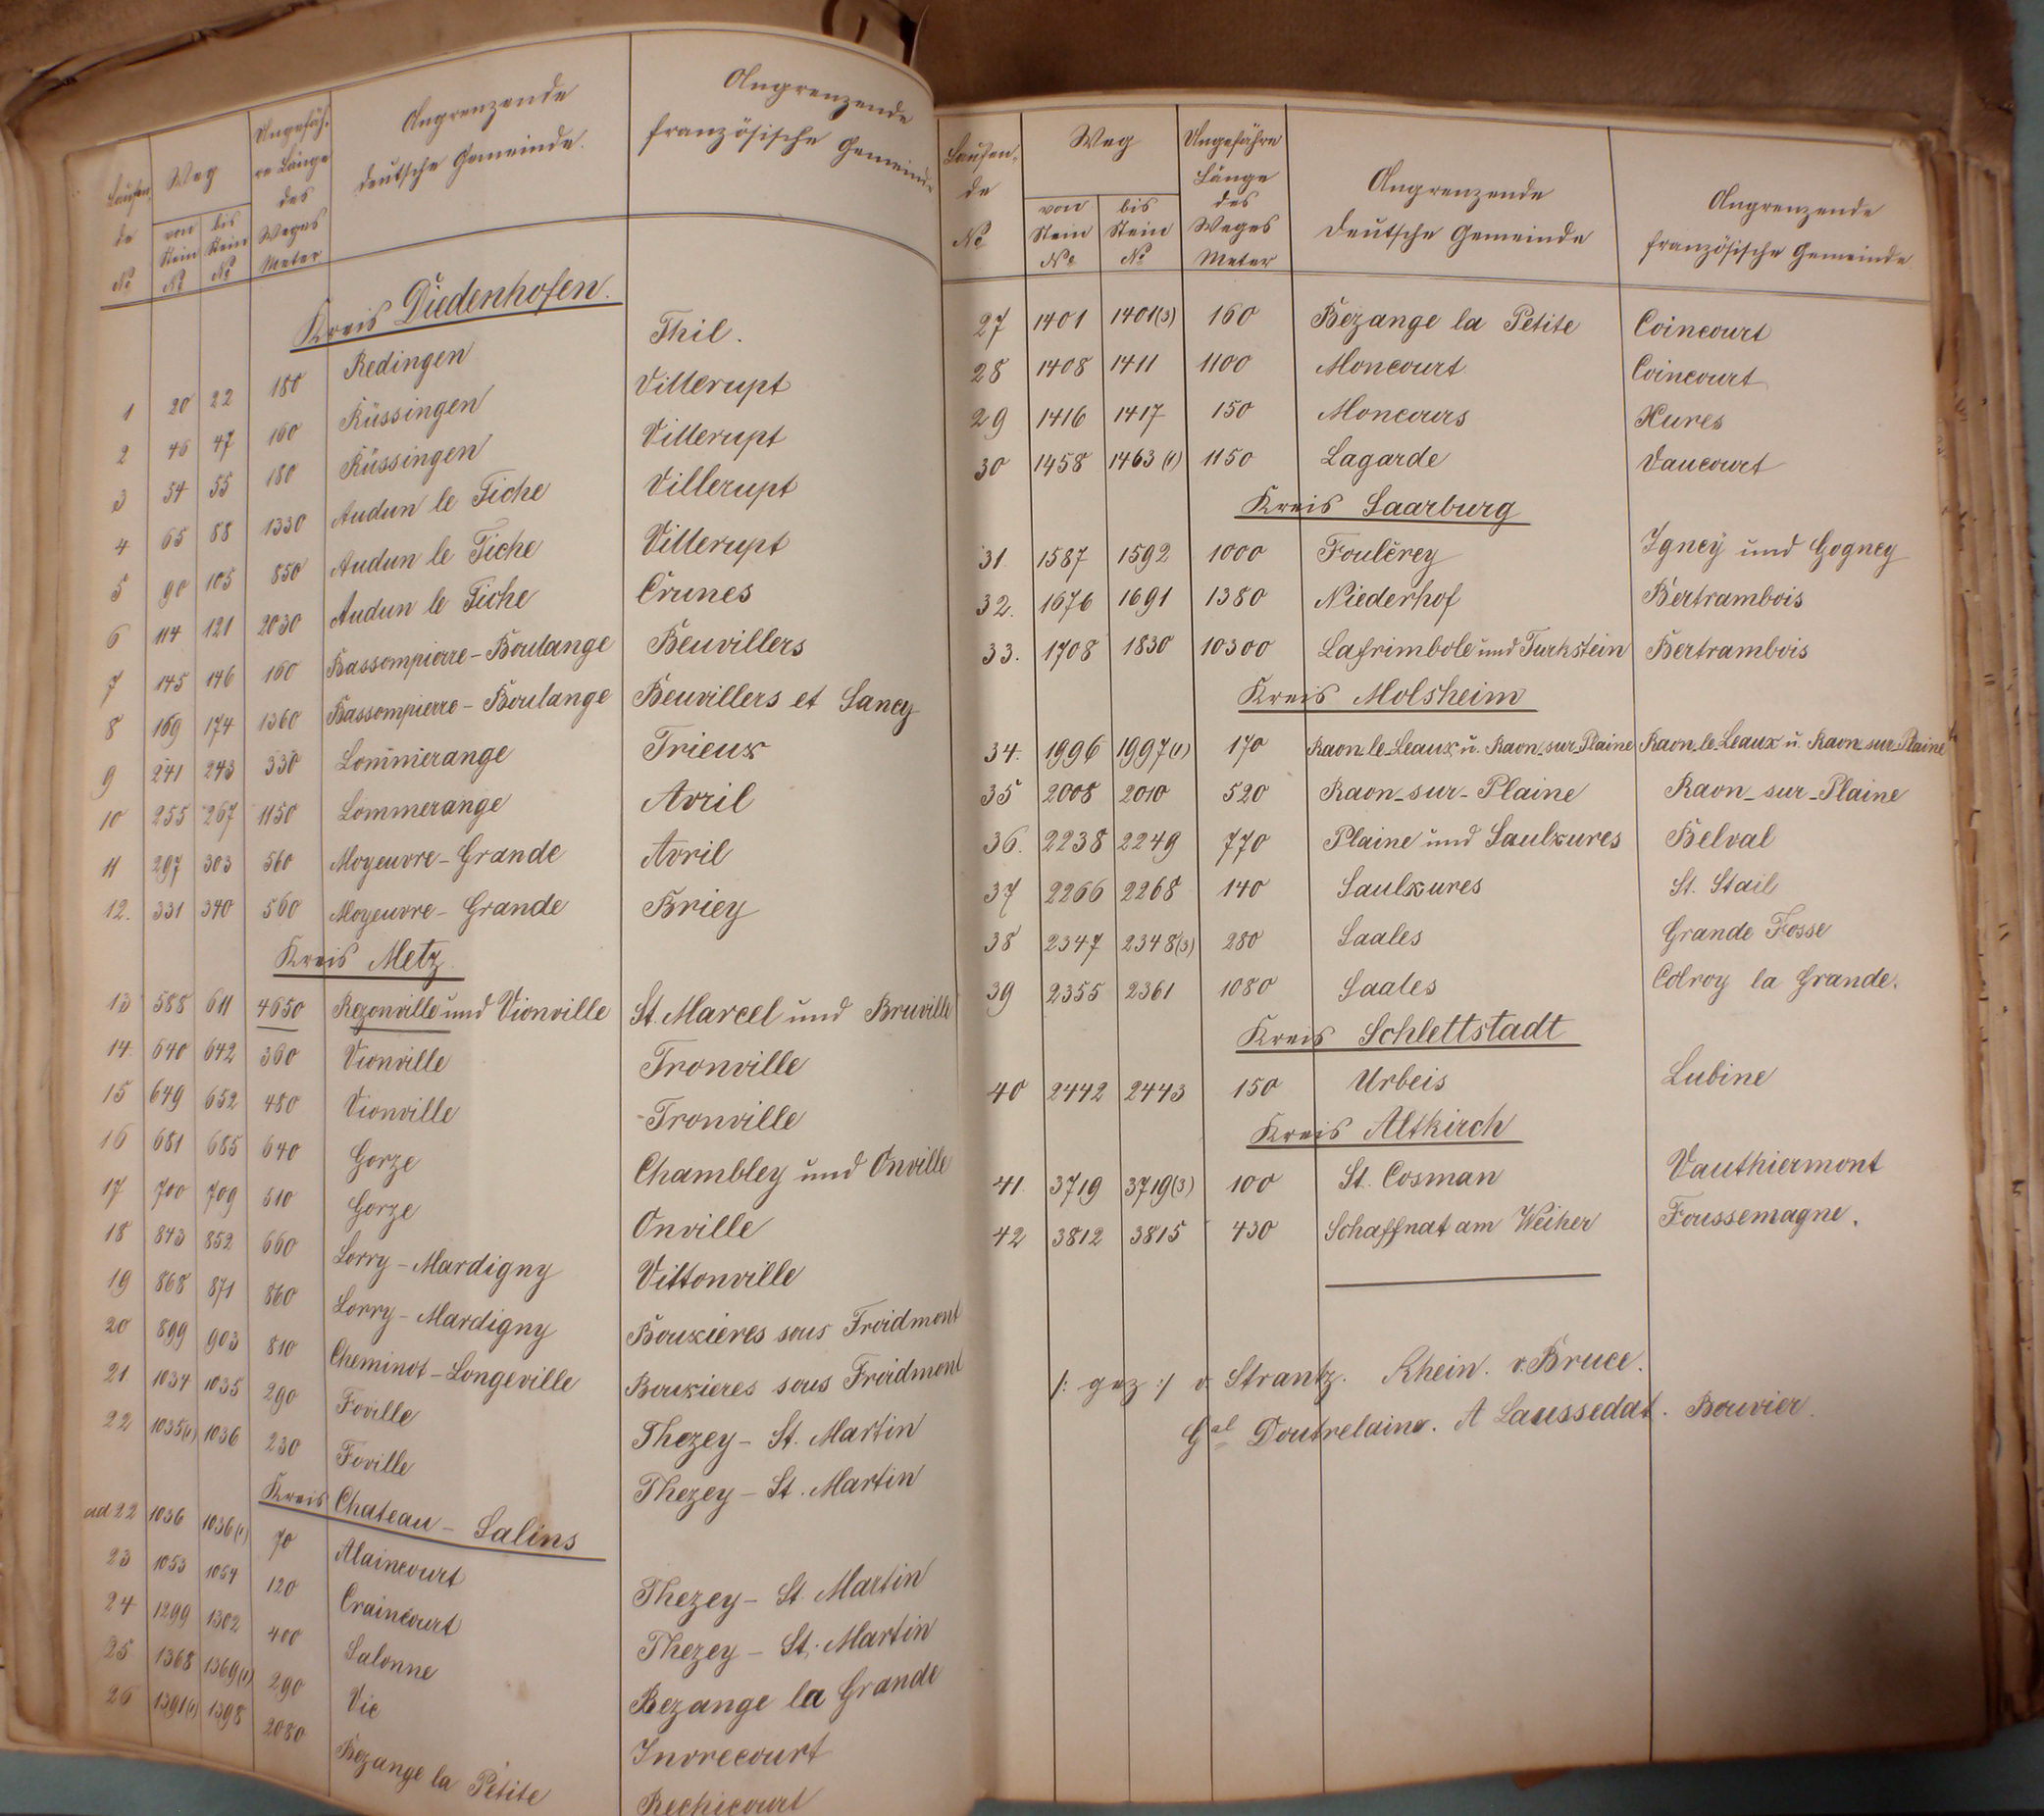 Laufen- Weg Ungefäh- Angrenzende Angrenzende
de von bis re Länge deutsche Gemeinde. französische Gemeinde
No Stein Stein des
No No Weges
Meter
Kreis Diedenhofen.
1 20 22 180 Redingen Thil.
2 46 47 160 Rüssingen Villerupt
3 54 55 180 Rüssingen Villerupt
4 65 88 1330 Audun le Tiche Villerupt
5 90 105 850 Audun le Tiche Villerupt
6 114 121 2030 Audun le Tiche Crunes
7 145 146 160 Bassompierre - Boulange Beuvillers
8 169 174 1360 Bassompierre - Boulange Beuvillers et Sancy
9 241 243 330 Lommerange Trieux
10 255 267 1150 Lommerange Avril
11 297 303 560 Moyeuvre - Grande Avril
12. 331 340 560 Moyeuvre - Grande Briey
Kreis Metz
13 588 611 4650 Rezonville und Vionville St. Marcel und Bruville
14. 640 642 360 Vionville Tronville
15 649 652 480 Vionville Tronville
16 681 685 640 Gorze Chambley und Onville
17 700 709 610 Gorze Onville
18 843 852 660 Lorry - Mardigny Vittonville
19 868 871 860 Lorry - Mardigny Bouxieres sous Froidmont
20 899 903 810 Cheminot - Longeville Bouxieres sous Froidmont
21 1034 1035 290 Foville Thezey - St. Martin
22 1035(1) 1036 230 Foville Thezey - St. Martin
Kreis Chateau - Salins
ad 22 1036 1036(1) 70 Alaincourt Thezey - St. Martin
23 1053 1054 120 Craincourt Thezey - St. Martin
24 1299 1302 400 Salonne Bezange la Grande
25 1368 1369(1) 290 Vic Invrecourt
26 1391(1) 1398 2080 Bezange la Petite Rechicourt
Laufen- Weg Ungefähre Angrenzende Angrenzende
de von bis Länge deutsche Gemeinde französische Gemeinde
No Stein Stein des
No No Weges
Meter
27 1401 1401(3) 160 Bezange la Petite Coincourt
28 1408 1411 1100 Moncourt Coincourt
29 1416 1417 150 Moncours Xures
30 1458 1463(1) 1150 Lagarde Vaucourt
Kreis Saarburg
31. 1587 1592 1000 Foulcrey Igney und Gogney
32. 1676 1691 1380 Niederhof Bertrambois
33. 1708 1830 10300 Lafrimbole und Turkstein Bertrambois
Kreis Molsheim
34. 1996 1997(1) 170 Raon le Leaux u. Raon sur Plaine Raon le Leaux u. Raon sur Plaine
35 2008 2010 520 Raon - sur - Plaine Raon - sur - Plaine
36. 2238 2249 770 Plaine und Saulxures Belval
37 2266 2268 140 Saulxures St. Stail
38 2347 2348(3) 280 Saales Grande Fosse
39 2355 2361 1080 Saales Colroy la Grande.
Kreis Schlettstadt
40 2442 2443 150 Urbeis Lubine
Kreis Altkirch
41. 3719 3719(3) 100 St. Cosman Vauthiermont
42 3812 3815 430 Schaffnat am Weiher Foussemagne.
/: gez :/ v. Strantz. Rhein. v. Bruce.
Gal Doutrelaine. A Laussedat. Bouvier.